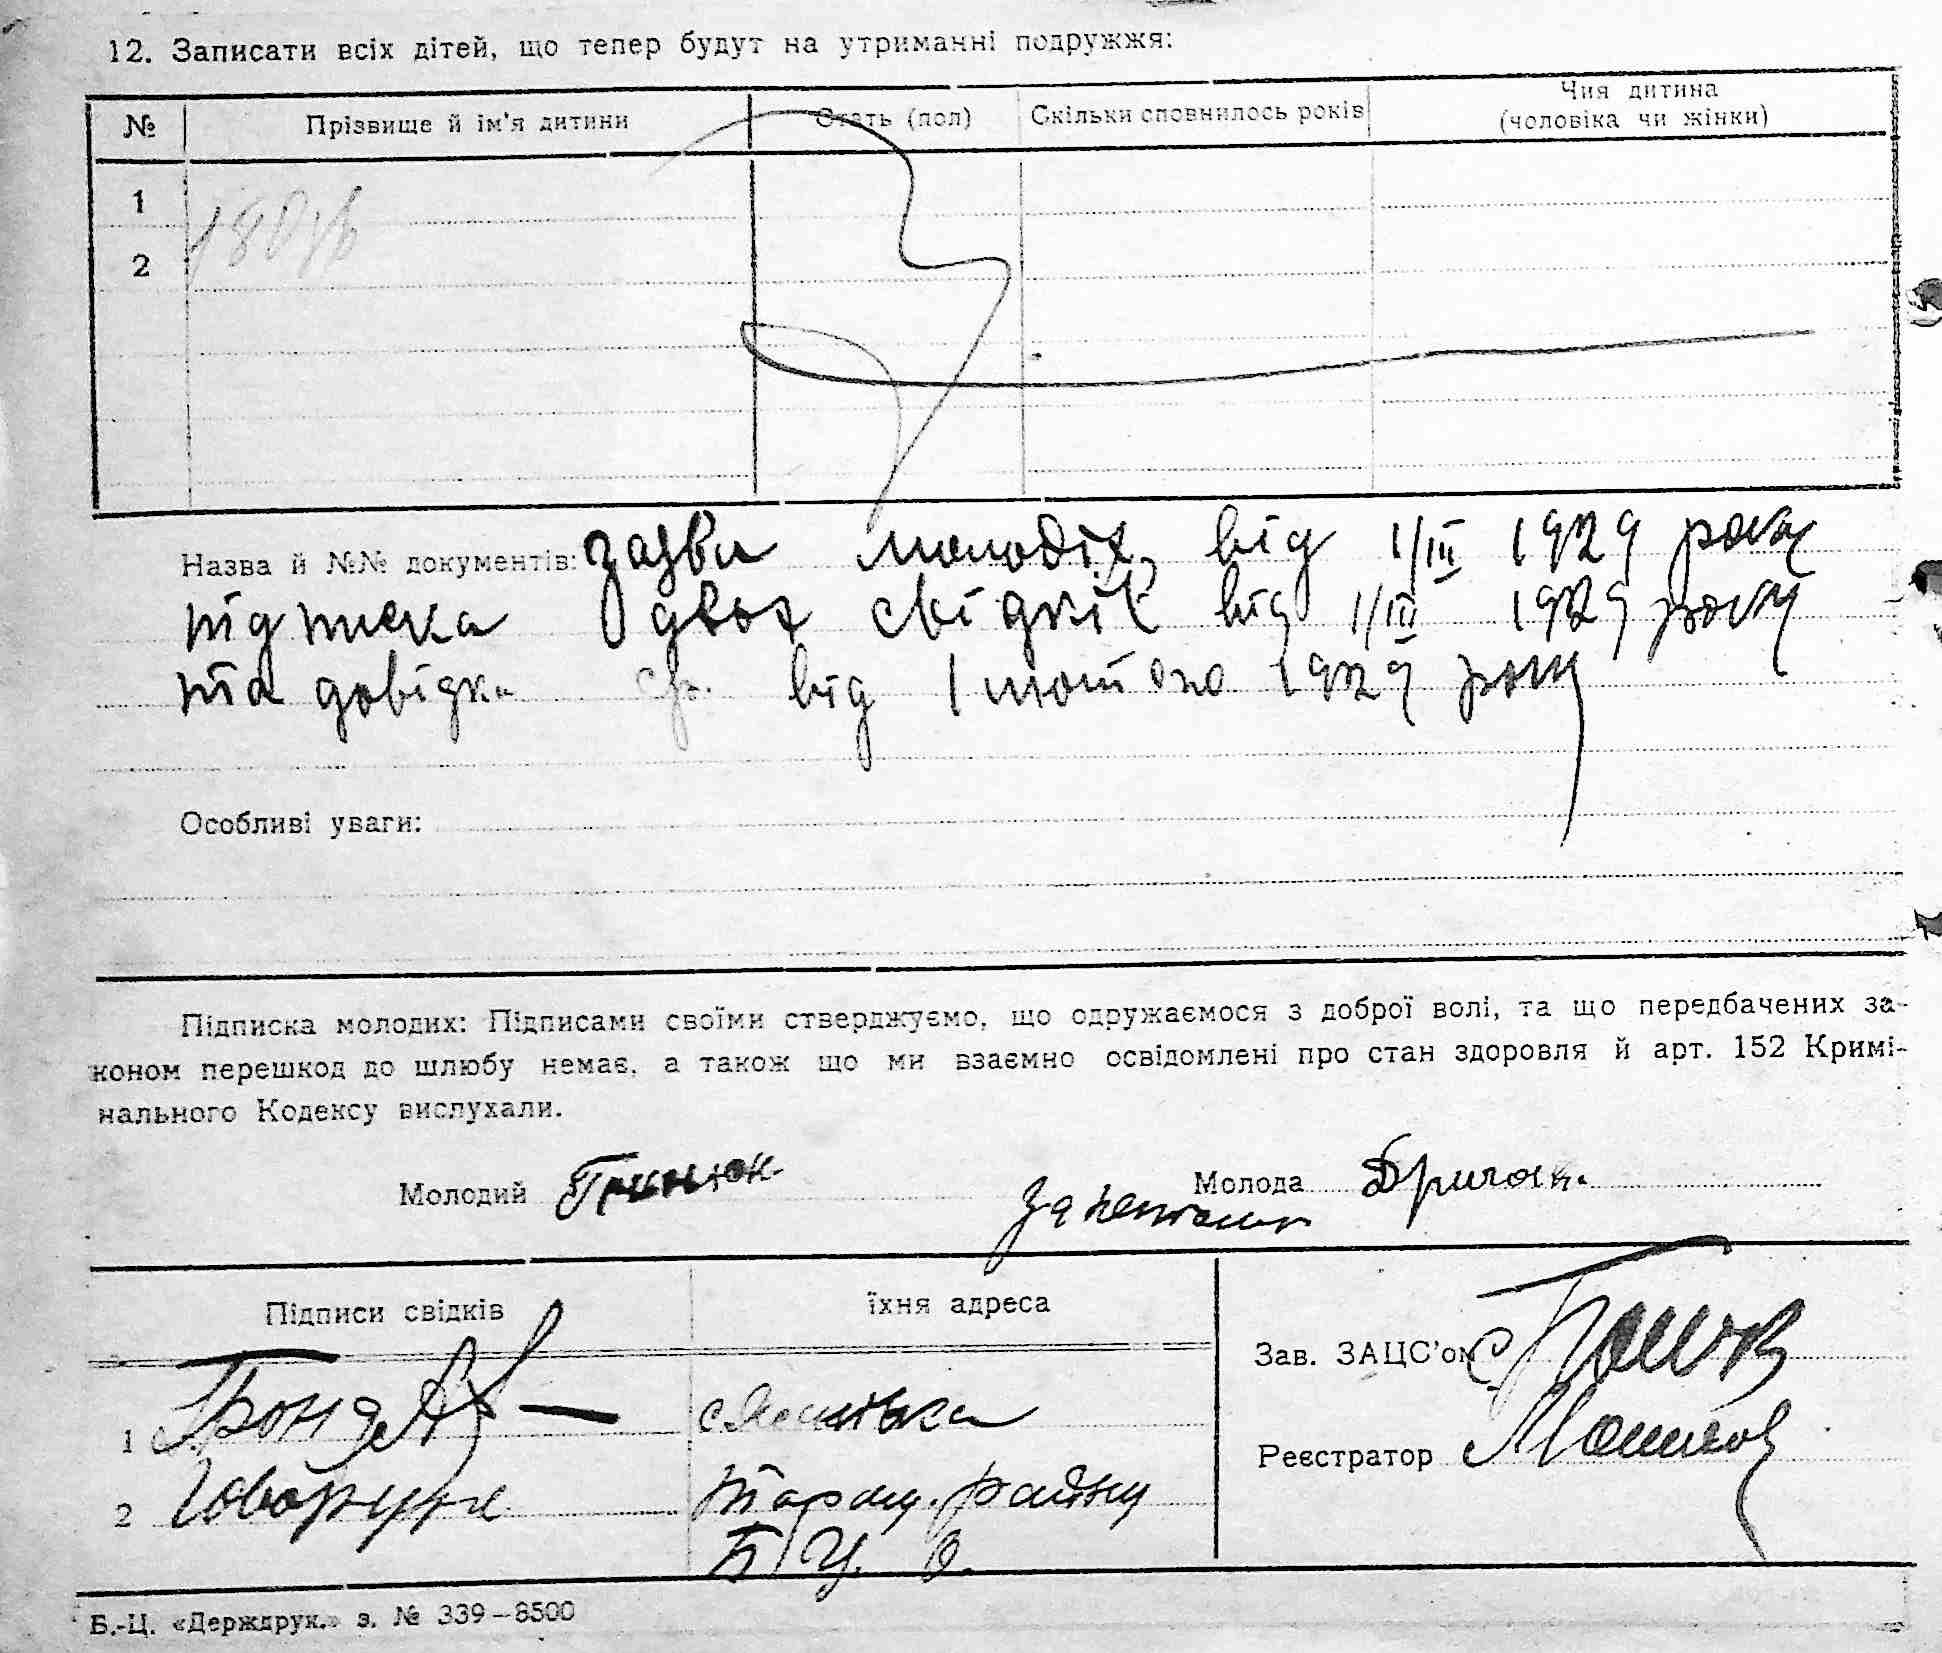 12. Записати всіх дітей, що тепер будут на утриманні подружжя:
№ Прізвище й ім'я дитини Стать (пол) Скільки сповнилось років Чия дитина (чоловіка чи жінки)
1
2
Назва й №№ документів: заяви молодіх, від 1/III 1929 року
підписка двох свідків від 1/III 1929 року
та довідка від 1 лютого 1929 року
Особливі уваги:
Підписка молодих: Підписами своїми стверджуємо, що одружаємося з доброї волі, та що передбачених за-
коном перешкод до шлюбу немає, а також що ми взаємно освідомлені про стан здоровля й арт. 152 Кримі-
нального Кодексу вислухали.
Молодий Гринюк Молода Дригак
Підписи свідків їхня адреса
Зав. ЗАЦС'ом
1
Реєстратор
2 Говорун Таращ. району
Б/Ц. О.
Б.-Ц. «Держдрук.» з. № 339—8500